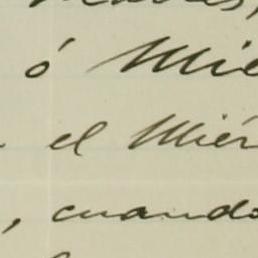 ó Mié
el Miér
, cuando